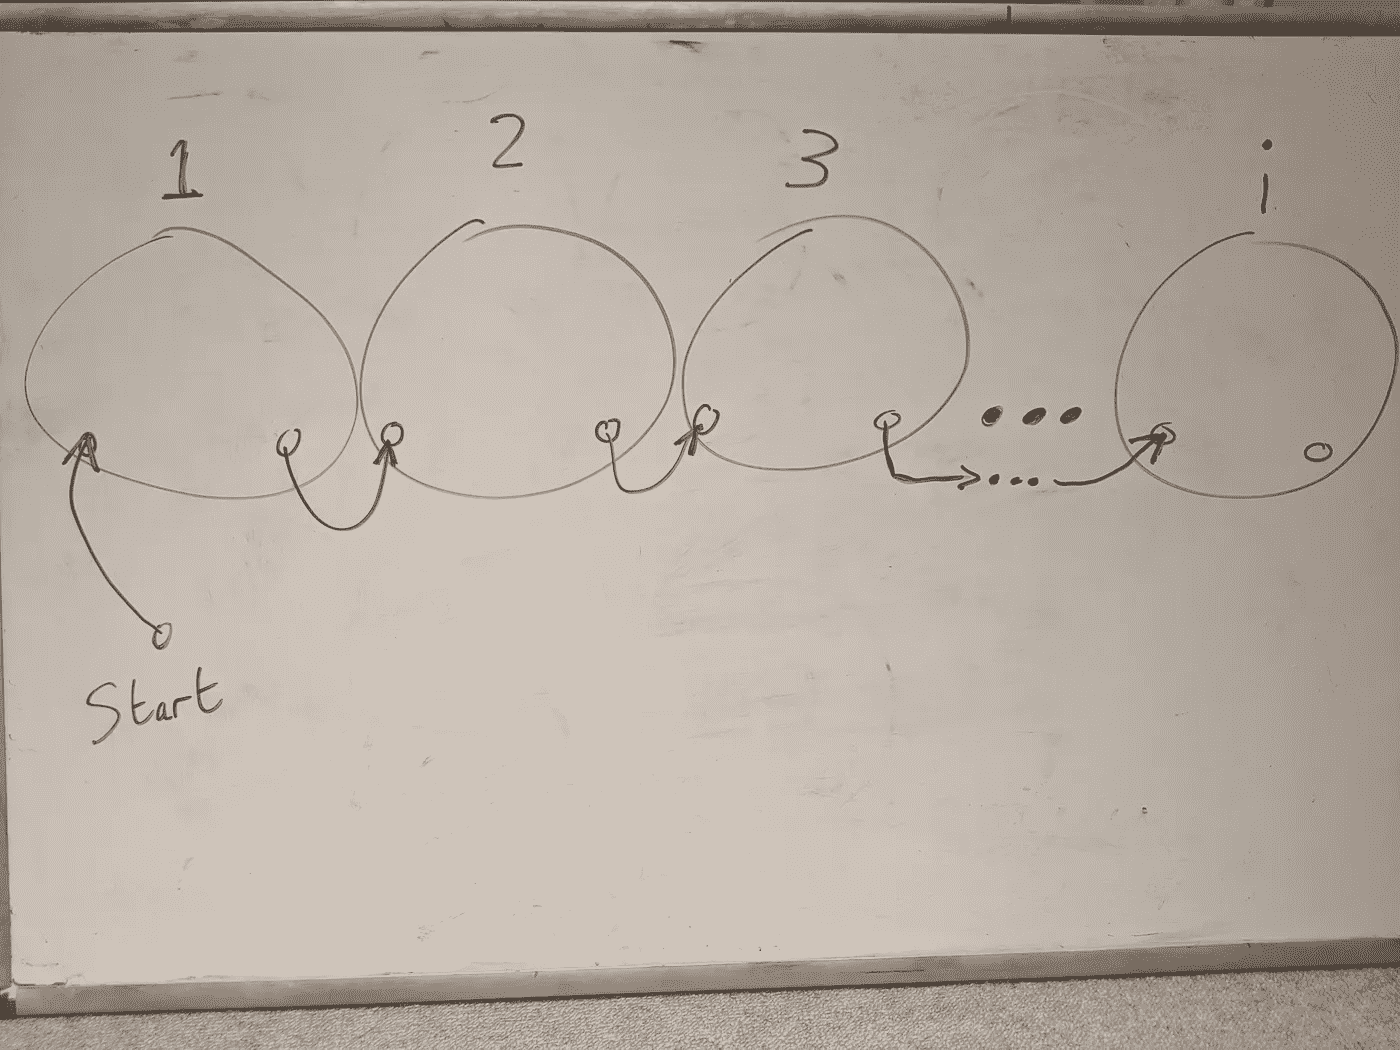 1 2 3 i
Start